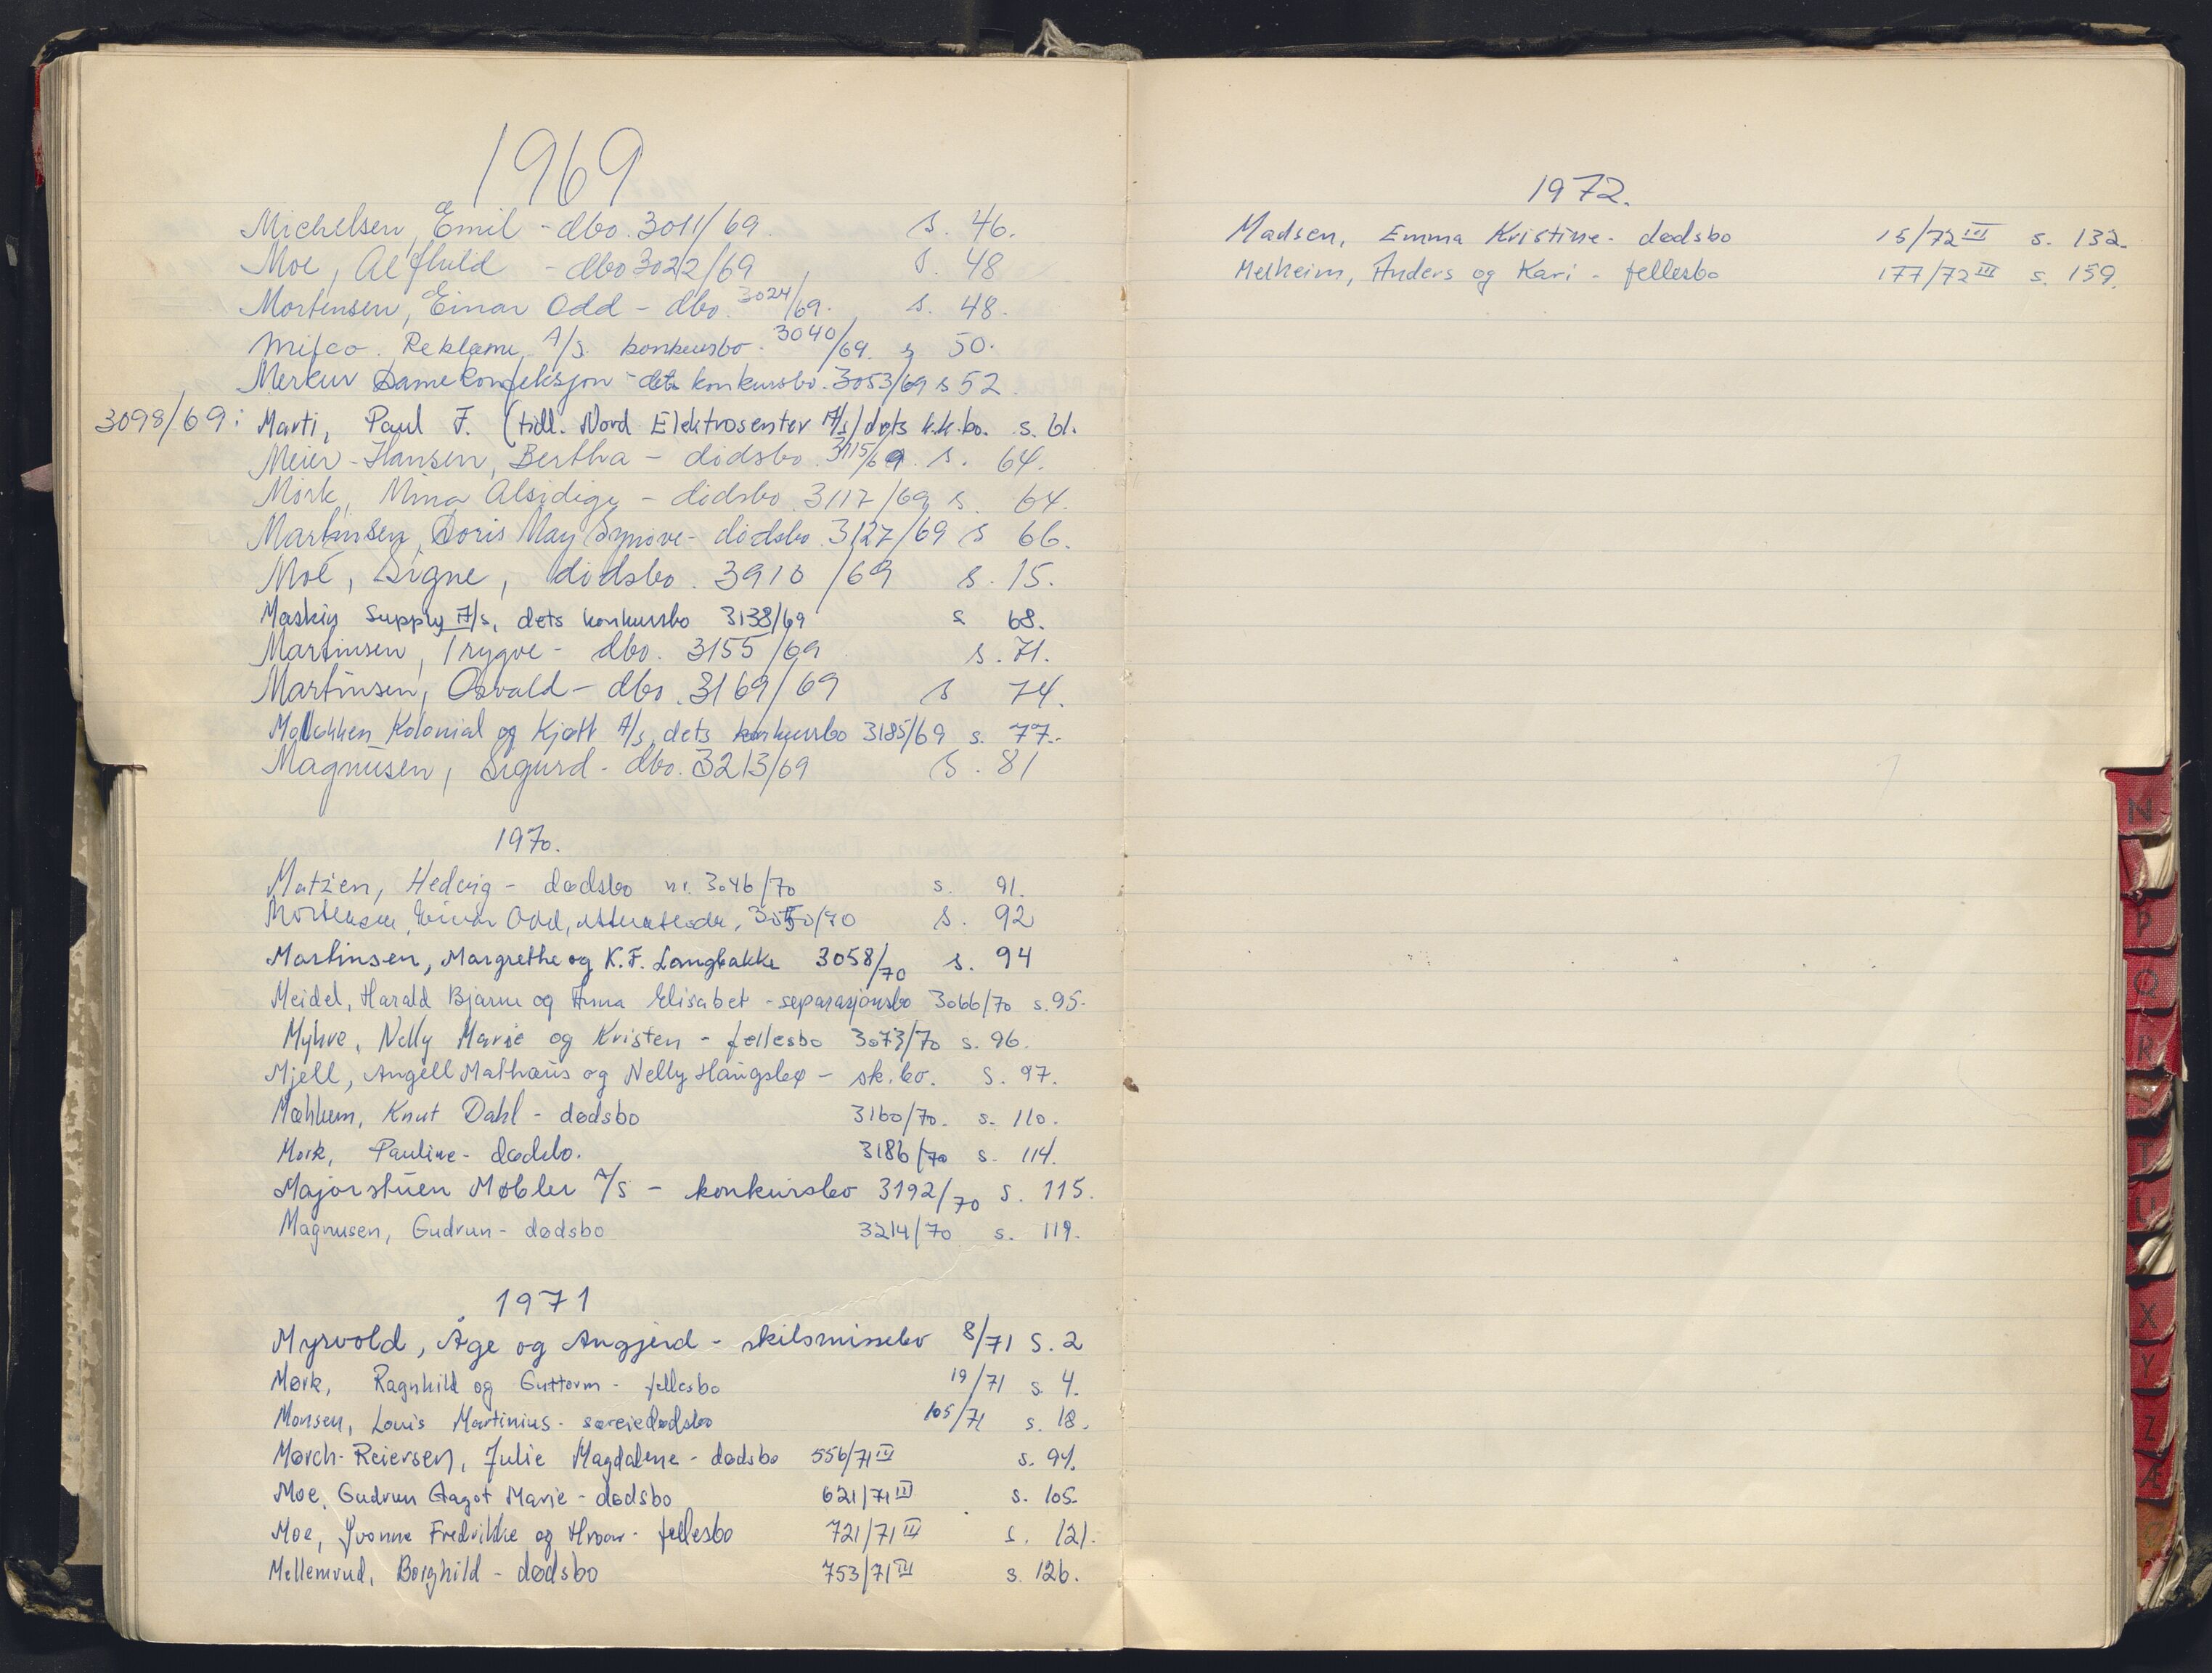 1969
Michelsen, Emil - dbo. 3011/69. s. 46.
Moe, Alfhild - dbo 3022/69, s. 48
Mortensen, Einar Odd - dbo. 3024/69. s. 48.
Mifco Reklame, A/S. konkursbo. 3040/69. s 50.
Merkur Damekonfeksjon - dets konkursbo. 3053/69 s 52.
3098/69: Marti, Paul F. (tidl. Nord Elektrosenter A/s) dets k.k.bo. s. 61.
Meier-Hansen, Bertha - dødsbo. 3115/69. s. 64.
Mørk, Mina - dødsbo. 3117/69 s. 64.
Martinsen, Doris May Synnøve - dødsbo. 3127/69 s 66.
Moe, Signe, dødsbo. 3910/69 s. 15.
Maskin Supply A/s, dets konkursbo 3138/69 s 68.
Martinsen, Trygve - dbo. 3155/69 s. 71.
Martinsen, Osvald - dbo. 3169/69 s 74.
Kolonial og Kjøtt A/s, dets konkursbo 3185/69 s. 77.
Magnusen, Sigurd - dbo. 3213/69 s. 81
1970.
Matzen, Hedvig - dødsbo nr. 3046/70 s. 91.
Mortensen, Einar Odd, 3050/70 s. 92
Martinsen, Margrethe og K.F. Langbakke 3058/70 s. 94
Meidel, Harald Bjarne og Anna Elisabet - separasjonsbo 3066/70 s. 95.
Myhre, Nelly Marie og Kristen - fellesbo 3073/70 s. 96.
Mjell, Angell Mathæus og Nelly Haugsbø - sk.bo. s. 97.
Mæhlum, Knut Dahl - dødsbo 3160/70. s. 110.
Mørk, Pauline - dødsbo. 3186/70 s. 114.
Majorstuen Møbler A/S - konkursbo 3192/70 s. 115.
Magnusen, Gudrun - dødsbo 3214/70 s. 119.
1971
Myrvold, Åge og Angjerd - skilsmissebo 8/71 s. 2
Mørk, Ragnhild og Guttorm - fellesbo 19/71 s. 4.
Monsen, Louis Martinius - særeiedødsbo 105/71 s. 18.
Mørch-Reiersen, Julie Magdalene - dødsbo 556/71 IV s. 94.
Moe, Gudrun Aagot Marie - dødsbo 621/71 III s. 105.
Moe, Yvonne Fredrikke og Hroar - fellesbo 721/71 III s. 121.
Mellemrud, Borghild - dødsbo 753/71 III s. 126.
1972.
Madsen, Emma Kristine - dødsbo 15/72 III s. 132.
Melheim, Anders og Kari - fellesbo 177/72 III s. 159.
N
P
Q
R
T
U
X
Y
Z
Æ